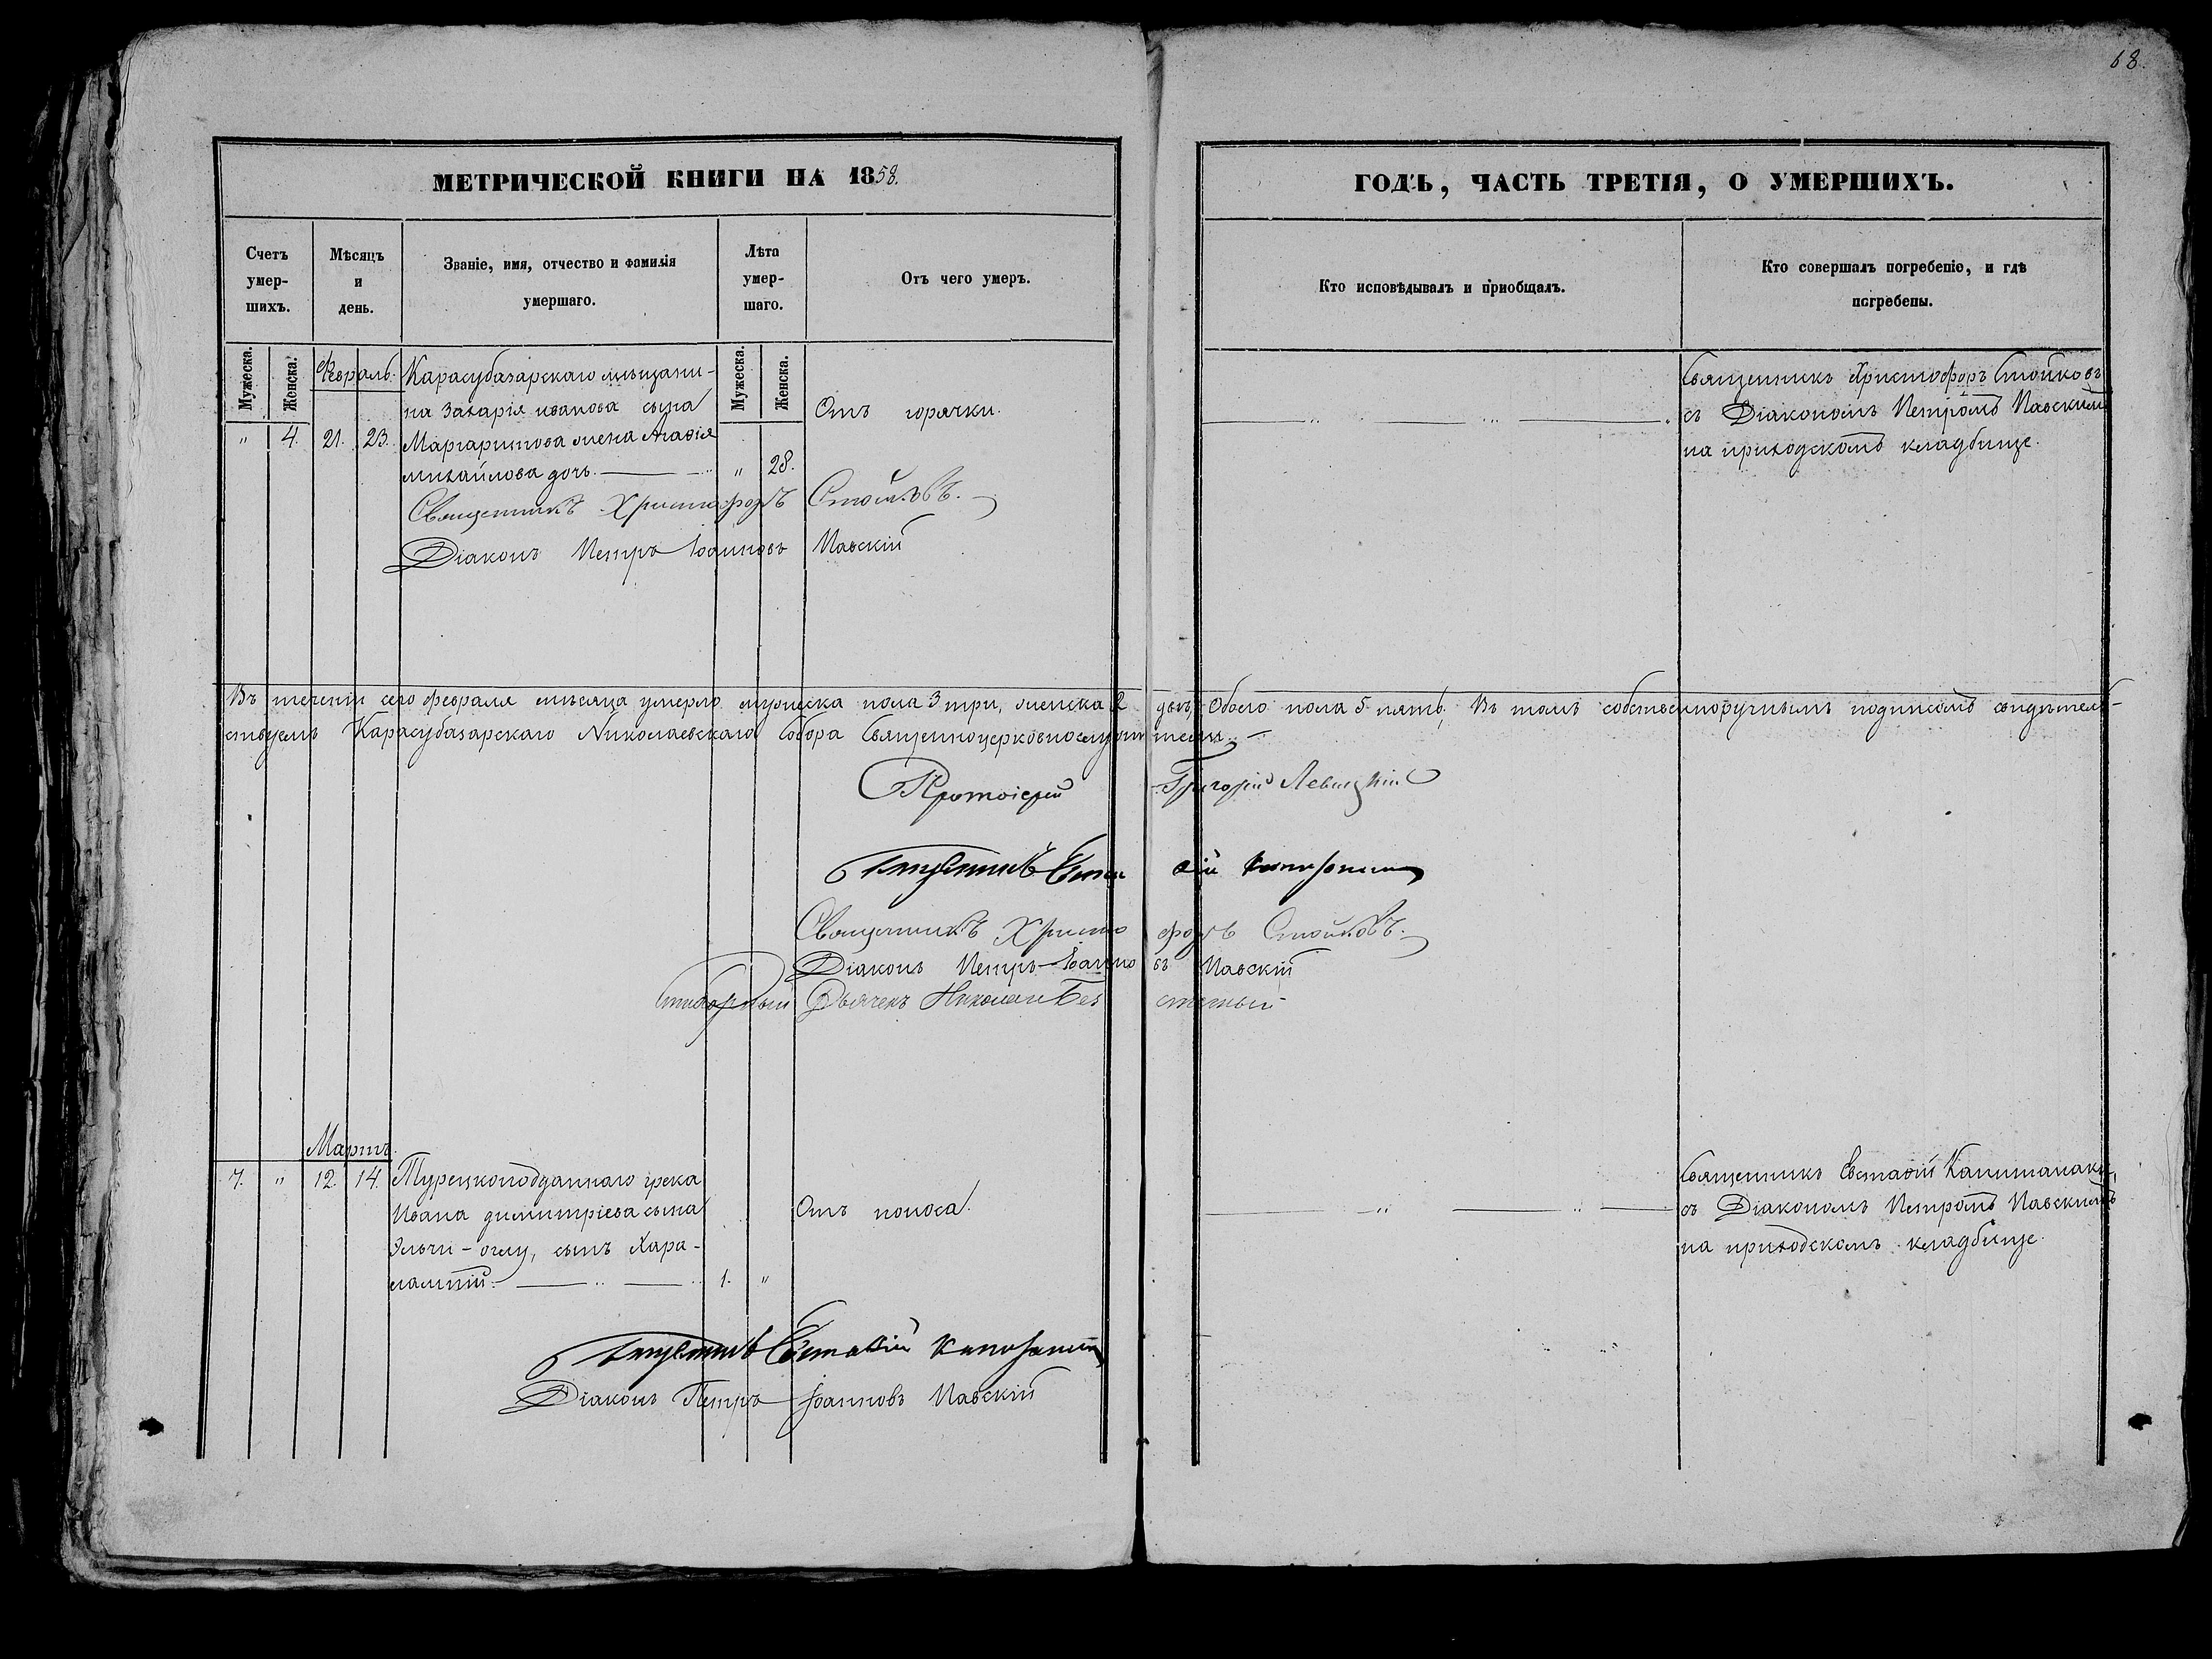 68.
МЕТРИЧЕСКОЙ КНИГИ НА 1858.
ГОДЪ, ЧАСТЬ ТРЕТІЯ, О УМЕРШИХЪ.
Счетъ умер-шихъ.
Мѣсяцъ и день.
Званіе, имя, отчество и фамилія умершаго.
Лѣта умер-шаго.
Отъ чего умеръ.
Кто исповѣдывалъ и пріобщалъ.
Кто совершалъ погребеніе, и гдѣ погребены.
Мужеска.
Женска.
Мужеска.
Женска.
Февраль.
" 4. 21. 23.
Карасубазарскаго мѣщани-
на Захарія иванова сына
Маргаритова жена Агафія
михайлова дочь. " 28.
Отъ горячки.
Священникъ Христофоръ Стойковъ
съ Діакономъ Петромъ Павскимъ
на приходскомъ кладбище.
Священникъ Христофоръ Стойковъ.
Діаконъ Петръ Іоанновъ Павскій
Въ теченіи сего февраля мѣсяца умерло мужеска пола 3 три, женска 2 двѣ, Обоего пола 5 пять, Въ томъ собственноручнымъ подписомъ свидѣтель-
ствуемъ Карасубазарскаго Николаевскаго Собора Священноцерковнослужители.
Протоіерей Григорій Левицкій
Священникъ Евстафій Капитанаки
Священникъ Христофоръ Стойковъ.
Діаконъ Петръ Іоанновъ Павскій
Дьячекъ Николай
Мартъ.
7. " 12. 14.
Турецкоподданнаго грека
Ивана димитріева сына
Эльчи-оглу, сынъ Хара-
лампій. 1. "
Отъ поноса.
Священникъ Евстафій Капитанаки,
съ Діакономъ Петромъ Павскимъ
на приходскомъ кладбище.
Священникъ Евстафій Капитанаки
Діаконъ Петръ Іоанновъ Павскій